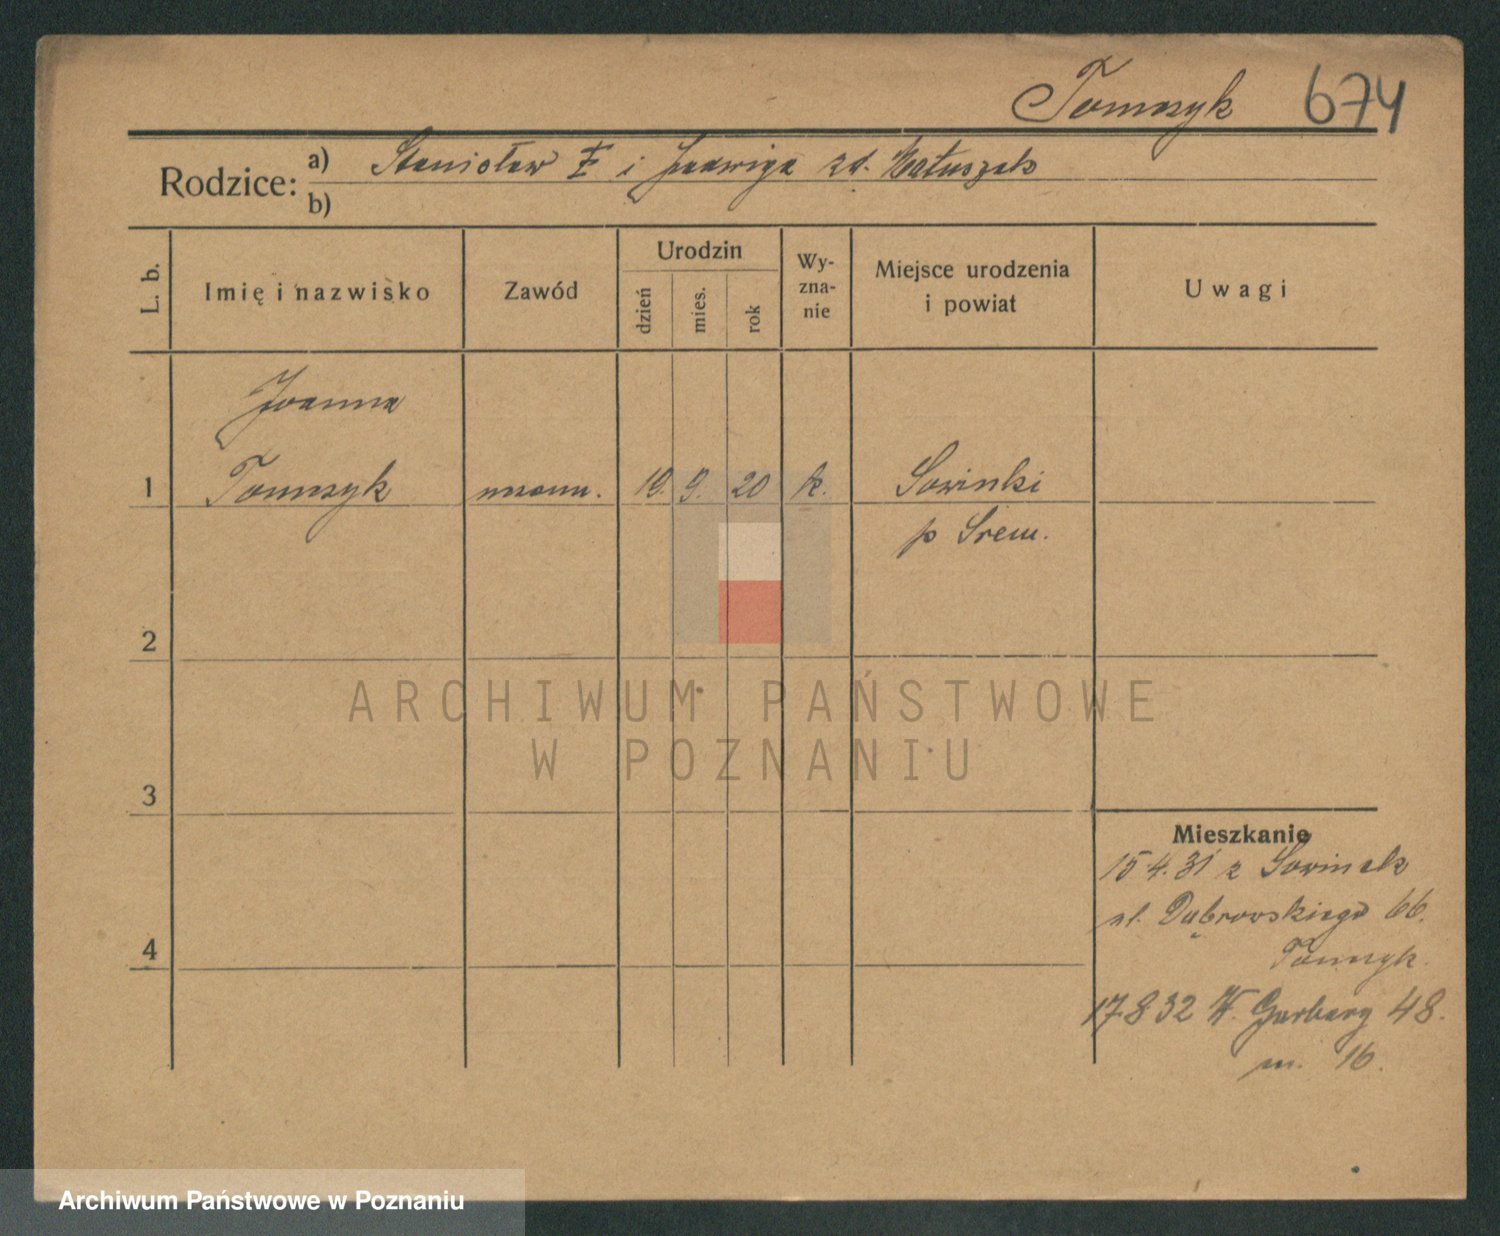 Tomczyk 674
Rodzice: a) Stanisław i Jadwiga zd. Matuszak
b)
L. b.
Imię i nazwisko
Zawód
Urodzin
dzień
mies.
rok
Wy-
zna-
nie
Miejsce urodzenia
i powiat
Uwagi
Joanna
1 Tomczyk uczenn. 19. 9. 20 k. Sowinki
p Śrem.
2
ARCHIWUM PAŃSTWOWE
W POZNANIU
3
Mieszkanie
15.4.31 z Sowinek
ul. Dąbrowskiego 66.
Tomczyk.
4
17832 W. Garbary 48.
m. 16.
Archiwum Państwowe w Poznaniu